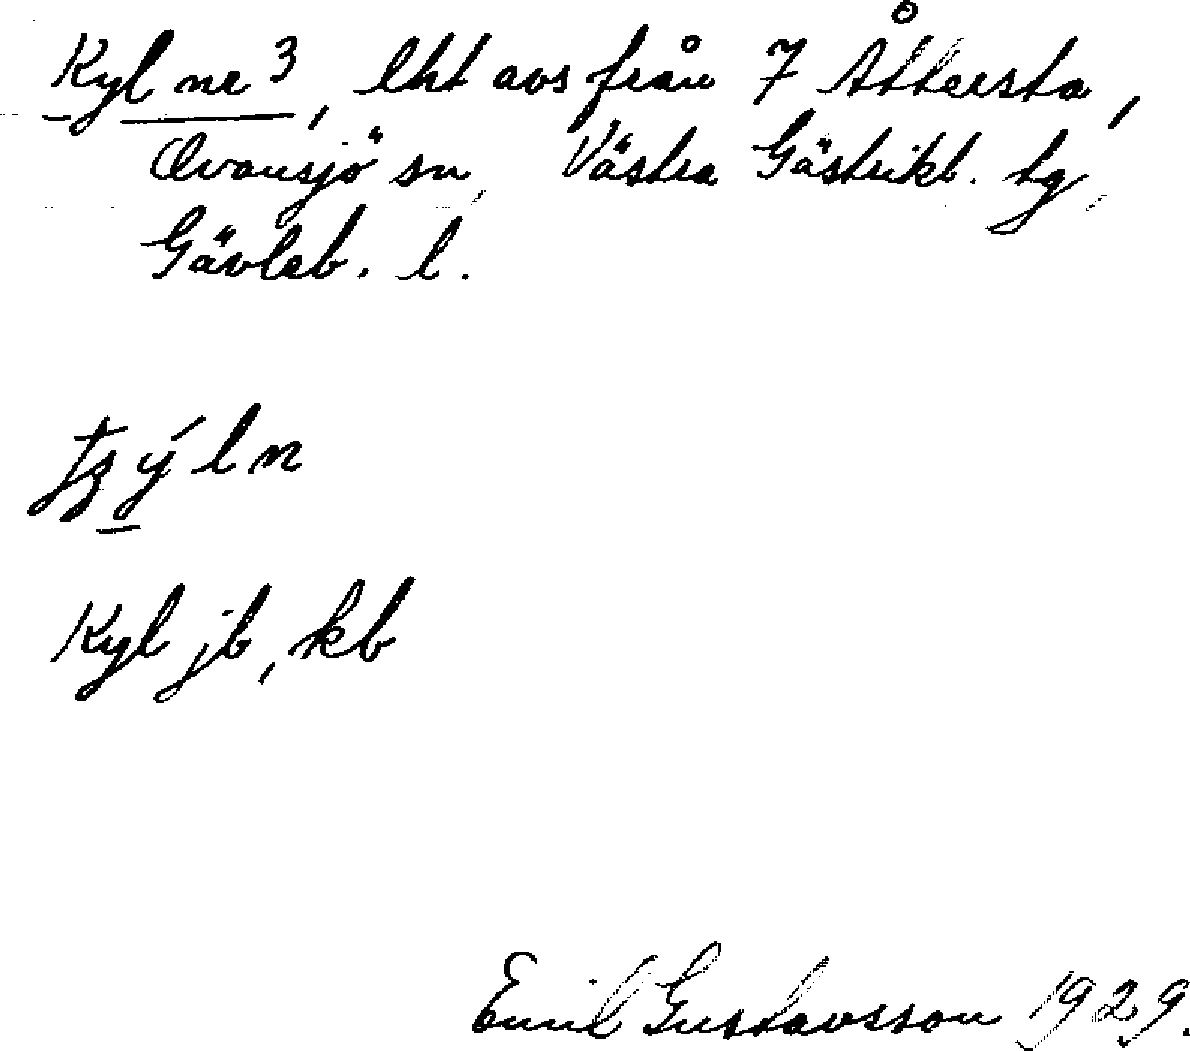 Kyl nr 3, lht avs från 7 Åttersta,
Ovansjö sn, Västra Gästrikl. tg,
Gävleb. l.
ýln
Kyl jb, kb
Emil Gustavsson 1929.